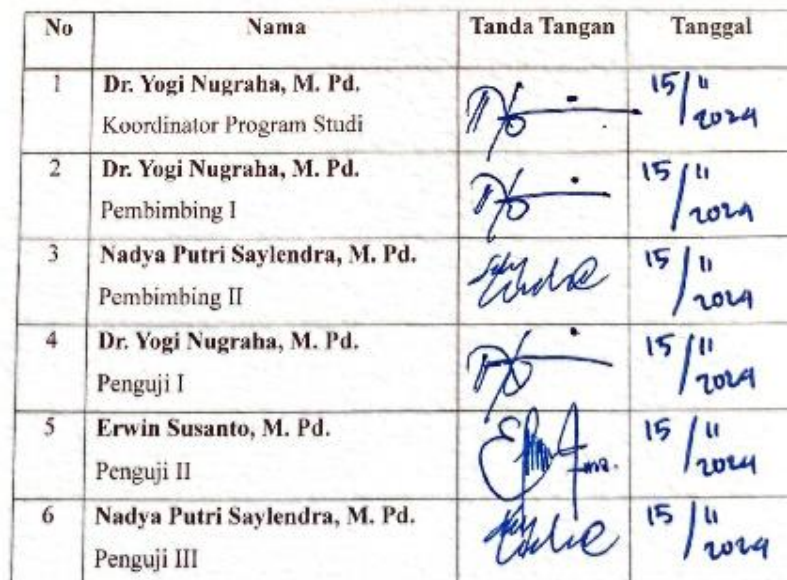 No Nama Tanda Tangan Tanggal
1 Dr. Yogi Nugraha, M. Pd. 15/11
Koordinator Program Studi 2024
2 Dr. Yogi Nugraha, M. Pd. 15/11
Pembimbing I 2024
3 Nadya Putri Saylendra, M. Pd. 15/11
Pembimbing II 2024
4 Dr. Yogi Nugraha, M. Pd. 15/11
Penguji I 2024
5 Erwin Susanto, M. Pd. 15/11
Penguji II 2024
6 Nadya Putri Saylendra, M. Pd. 15/11
Penguji III 2024